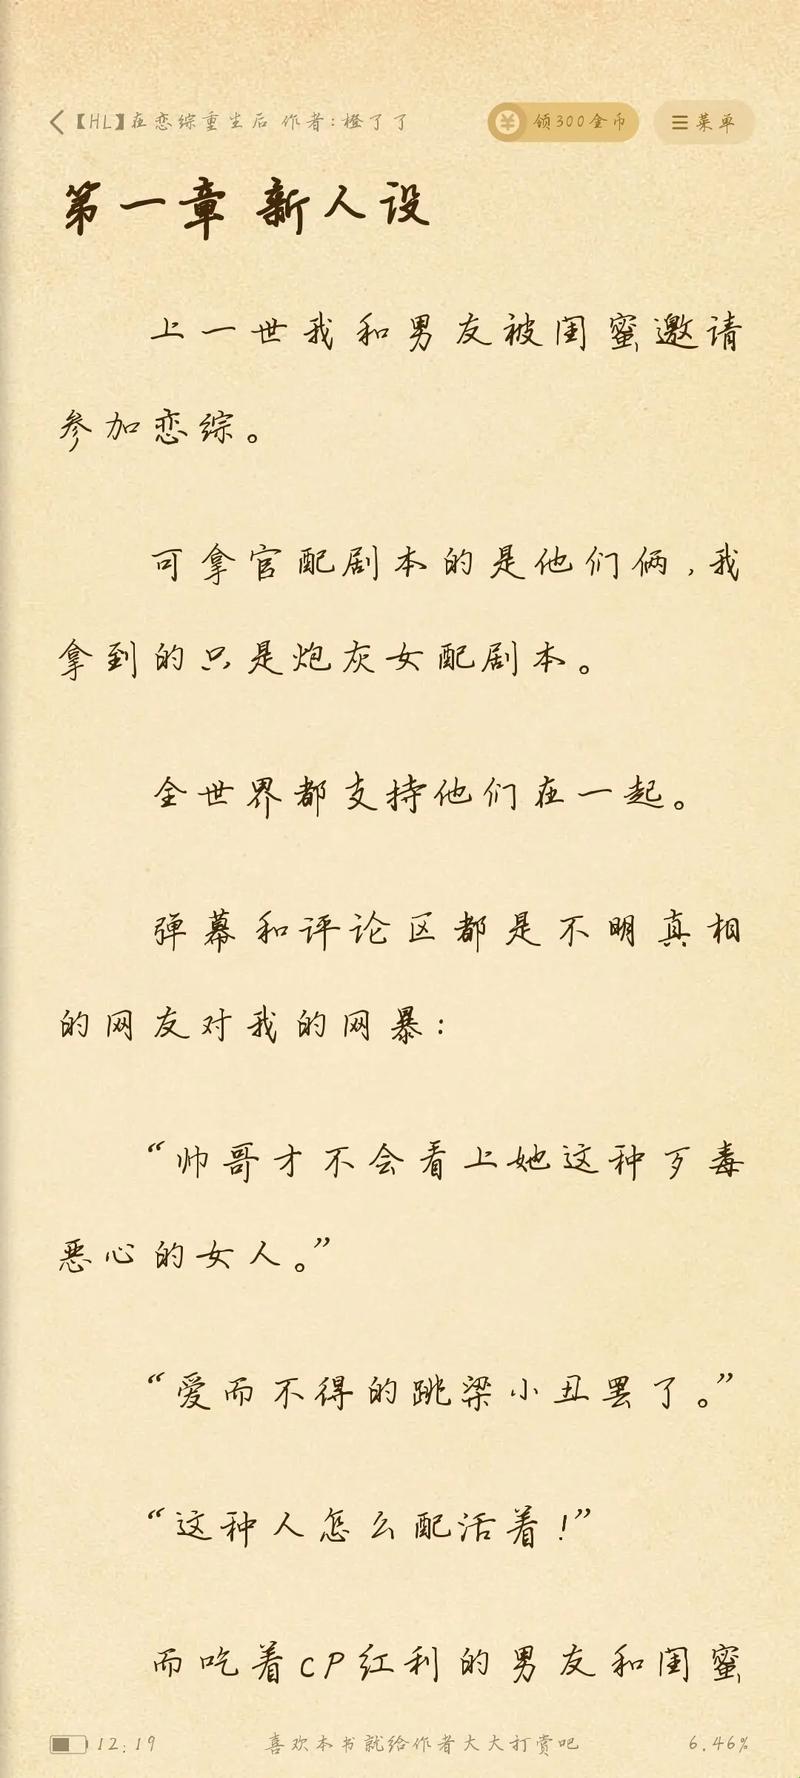 【HL】在恋综重生后 作者:橙了了
领300金币
菜单
第一章 新人设
上一世我和男友被闺蜜邀请
参加恋综。
可拿官配剧本的是他们俩,我
拿到的只是炮灰女配剧本。
全世界都支持他们在一起。
弹幕和评论区都是不明真相
的网友对我的网暴:
“帅哥才不会看上她这种歹毒
恶心的女人。”
“爱而不得的跳梁小丑罢了。”
“这种人怎么配活着!”
而吃着cP红利的男友和闺蜜
12:19
喜欢本书就给作者大大打赏吧
6.46%